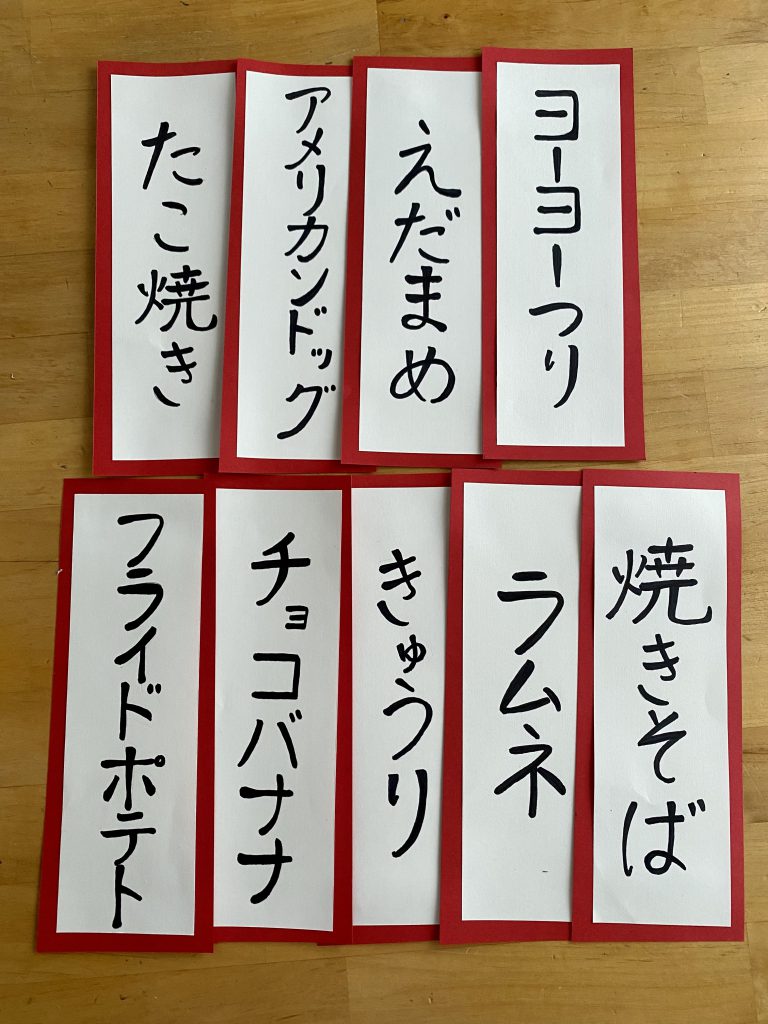 ヨーヨーつり
えだまめ
アメリカンドッグ
たこ焼き
焼きそば
ラムネ
きゅうり
チョコバナナ
フライドポテト